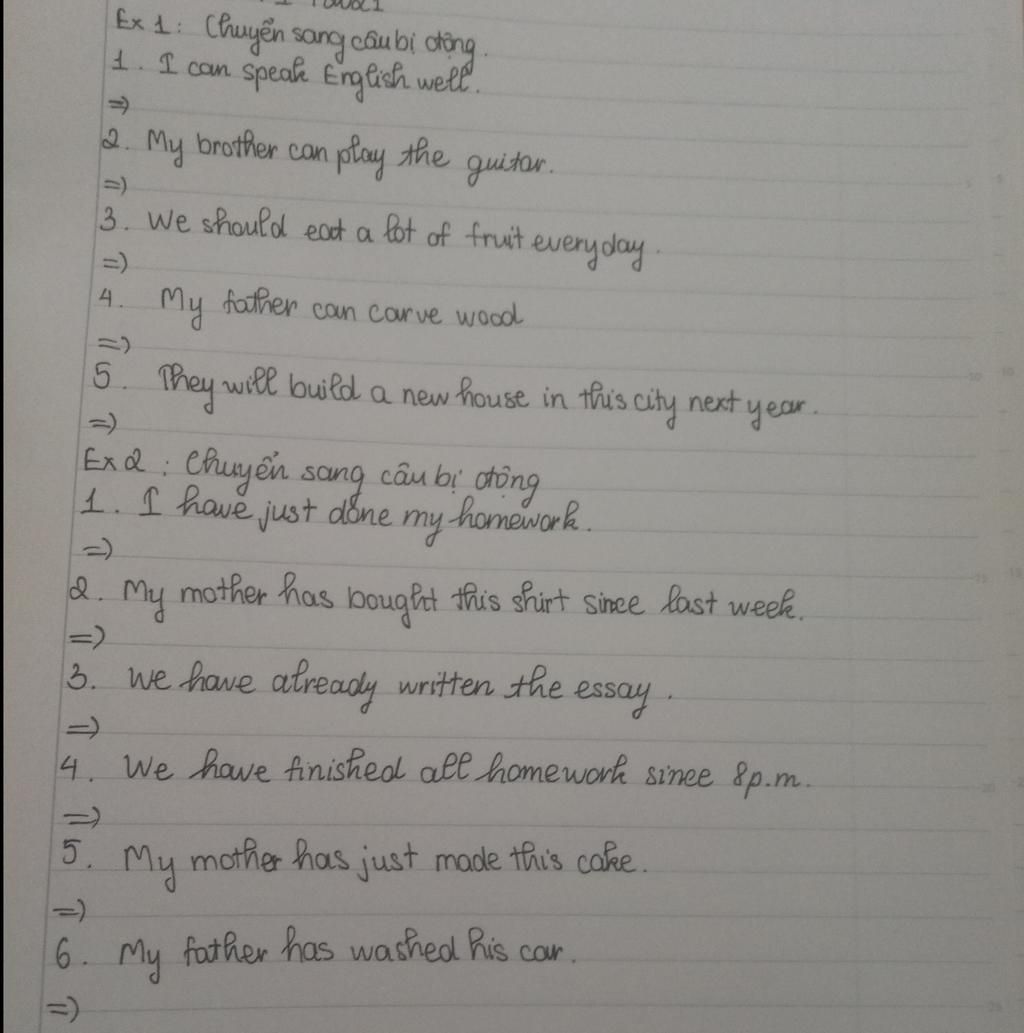 Ex 1: Chuyển sang câu bị động.
1. I can speak English well.
=>
2. My brother can play the guitar.
=>
3. We should eat a lot of fruit everyday.
=>
4. My father can carve wood
=>
5. They will build a new house in this city next year.
=>
Ex 2: Chuyển sang câu bị động
1. I have just done my homework.
=>
2. My mother has bought this shirt since last week.
=>
3. We have already written the essay.
=>
4. We have finished all homework since 8p.m.
=>
5. My mother has just made this cake.
=>
6. My father has washed his car.
=>